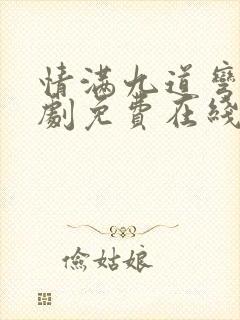 情满九道弯
剧免费在线
俭姑娘